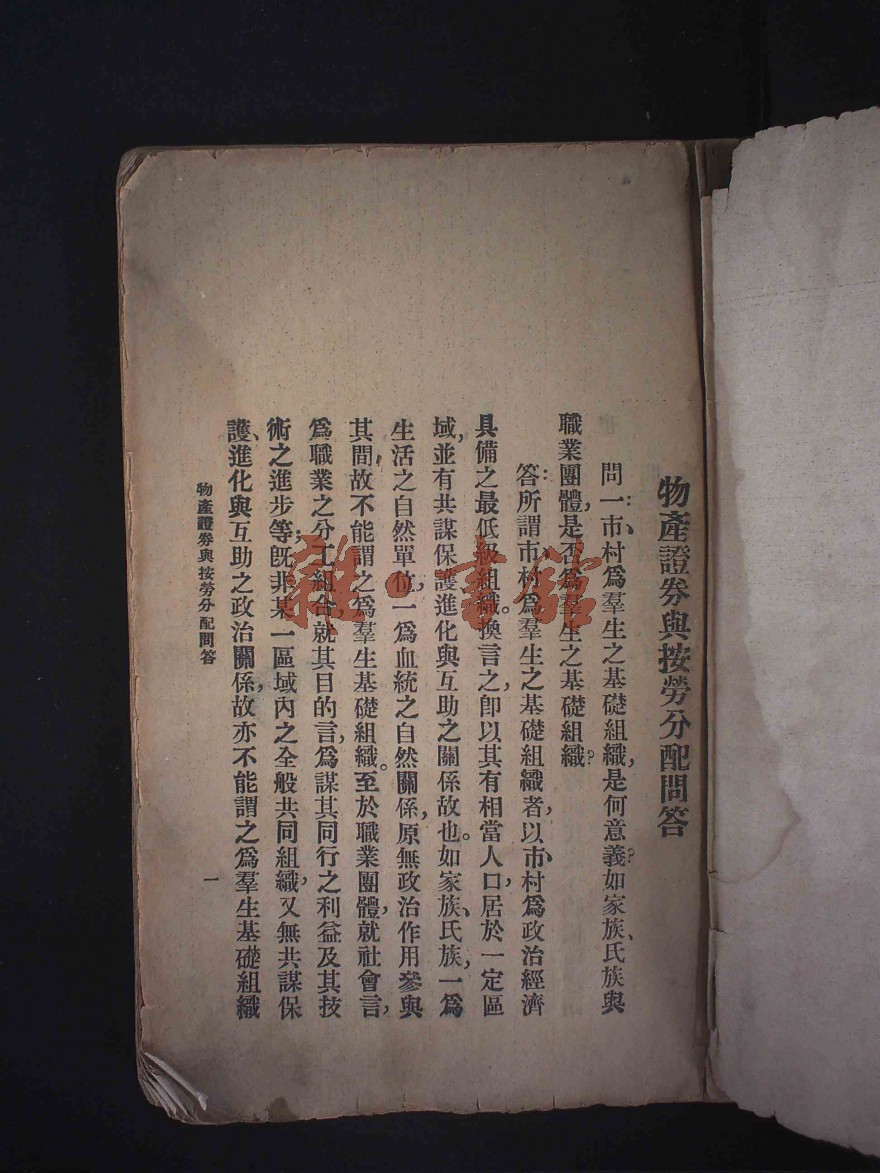 物產證券與按勞分配問答
問：一、市村爲羣生之基礎組織，是何意義？如家族、氏族與
職業團體，是否爲羣生之基礎組織？
答：所謂市、村爲羣生之基礎組織者，以市、村爲政治經濟
具備之最低級組織。換言之，卽以其有相當人口，居於一定區
域，並有共謀保護進化與互助之關係故也。如家族、氏族，一爲
生活之自然單位，一爲血統之自然關係，原無政治作用參與
其間，故不能謂之爲羣生基礎組織。至於職業團體，就社會言，
爲職業之分工組合，就其目的言，爲謀其同行之利益及其技
術之進步等；旣非某一區域內之全般共同組織，又無共謀保
護、進化與互助之政治關係，故亦不能謂之爲羣生基礎組織
物產證券與按勞分配問答
一
雜·書館